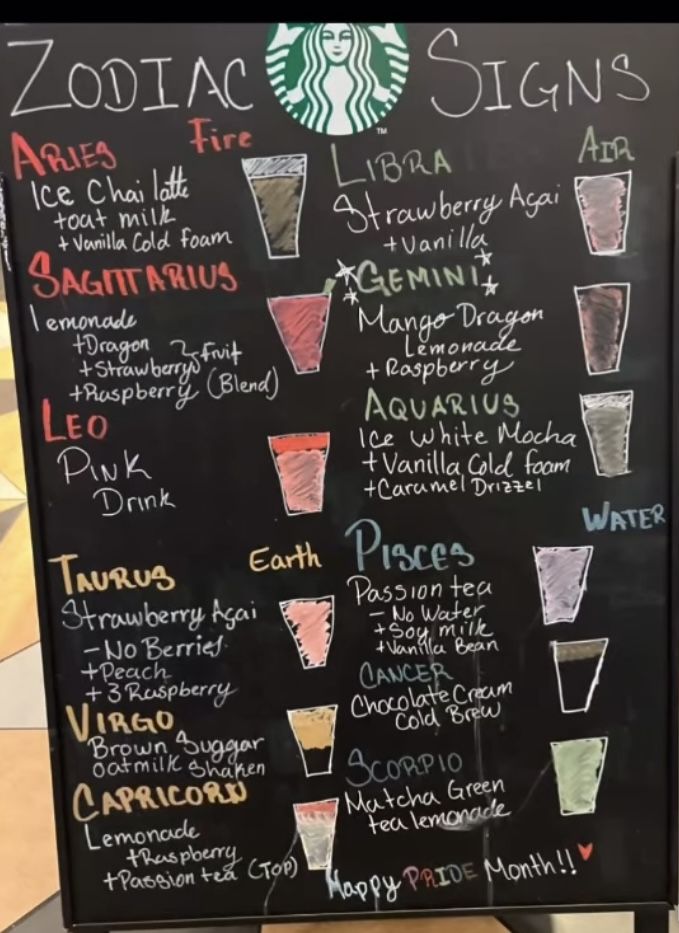 ZODIAC SIGNS
TM
Fire
ARIES
Ice Chai latte
+oat milk
+Vanilla Cold foam
SAGITTARIUS
lemonade
+Dragon
+Strawberry } fruit
+Raspberry (Blend)
LEO
PINK
Drink
Earth
TAURUS
Strawberry Açai
- No Berries
+Peach
+ 3 Raspberry
VIRGO
Brown Suggar
Oatmilk Shaken
CAPRICORN
Lemonade
+Raspberry
+Passion tea (Top)
AIR
LIBRA
Strawberry Açai
+Vanilla
GEMINI
Mango Dragon
Lemonade
+ Raspberry
AQUARIUS
Ice White Mocha
+Vanilla Cold foam
+Caramel Drizzel
WATER
PISCES
Passion tea
- No Water
+Soy milk
+Vanilla Bean
CANCER
Chocolate Cream
Cold Brew
SCORPIO
Matcha Green
tea lemonade
Happy PRIDE Month!!